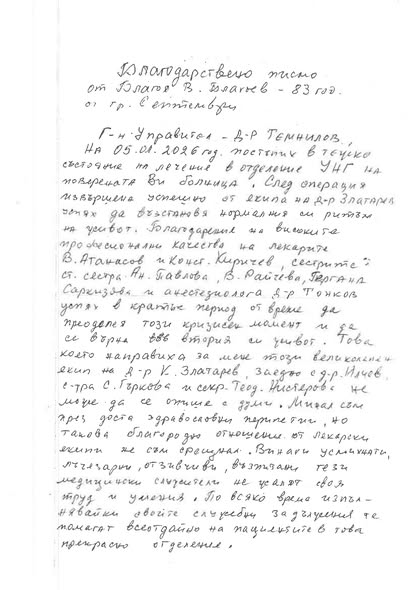 Благодарствено писмо
от Благой В. Благоев - 83 год.
от гр. Септември
Г-н Управител - Д-р Темнилов,
На 05.01.2026 год. постъпих в тежко
състояние на лечение в отделение УНГ на
поверената Ви болница. След операция
извършена успешно от екипа на д-р Златарев
успях да възстановя нормалния си ритъм
на живот. Благодарение на високите
професионални качества на лекарите
В. Атанасов и Конст. Киричев, сестрите:
ст. сестра Ан. Павлова, В. Райчева, Гергана
Саркизова и анестезиолога д-р Тонков
успях в кратък период от време да
преодолея този кризисен момент и да
се върна във втория си живот. Това
което направиха за мене този великолепен
екип на д-р К. Златарев, заедно с д-р. Илчев
с-тра С. Гъркова и секр. Теод. Нистерова не
може да се опише с думи. Минал съм
през доста здравословни перипетии, но
такова благородно отношение от лекарски
екипи не съм срещал. Винаги усмихнати,
лъчезарни, отзивчиви, възпитани тези
медицински служители не жалят своя
труд и умения. По всяко време изпъл-
нявайки своите служебни задължения те
помагат всеотдайно на пациентите в това
прекрасно отделение.